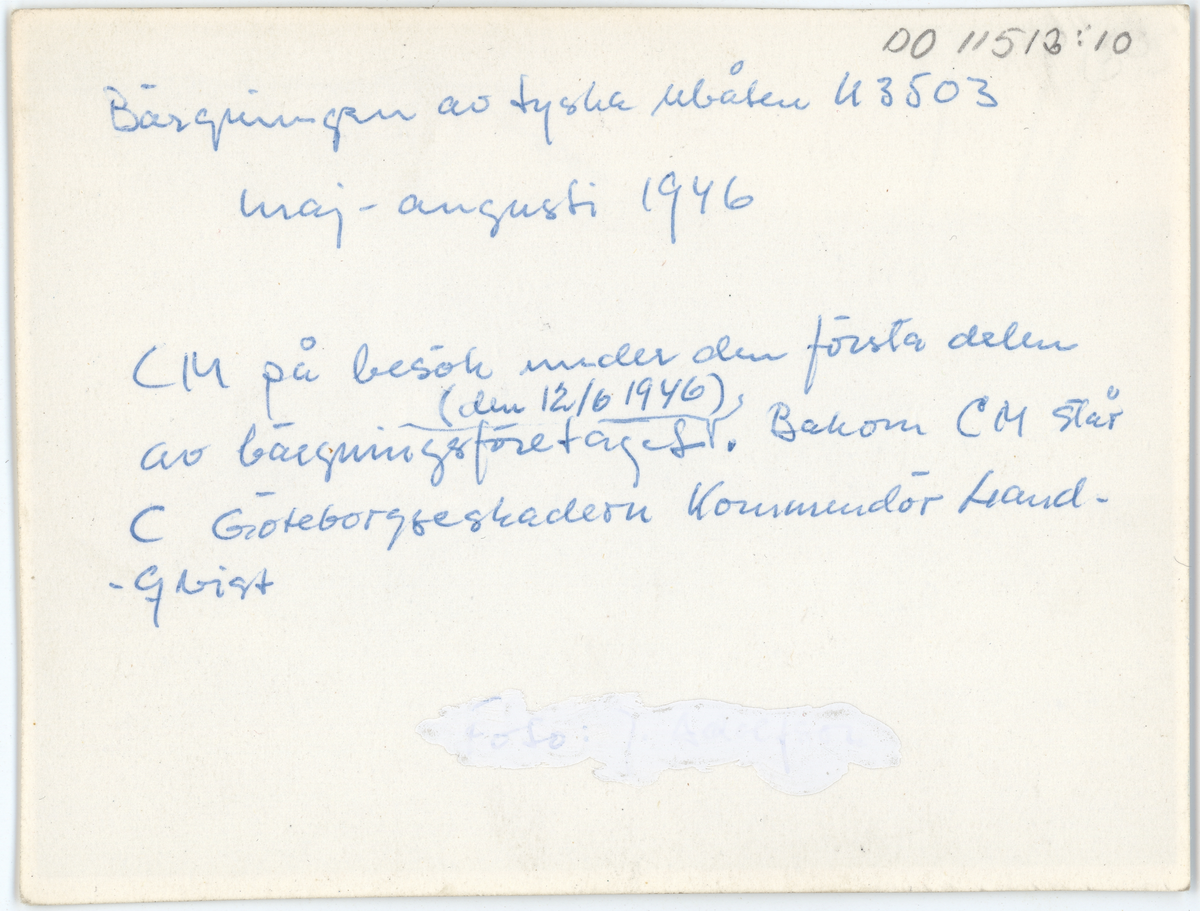 DO 11513:10
Bärgningen av tyska ubåten U3503
maj - augusti 1946
CM på besök under den första delen
(den 12/6 1946),
av bärgningsföretaget. Bakom CM står
C Göteborgseskadern Kommendör Land-
-qvist
Foto: J.